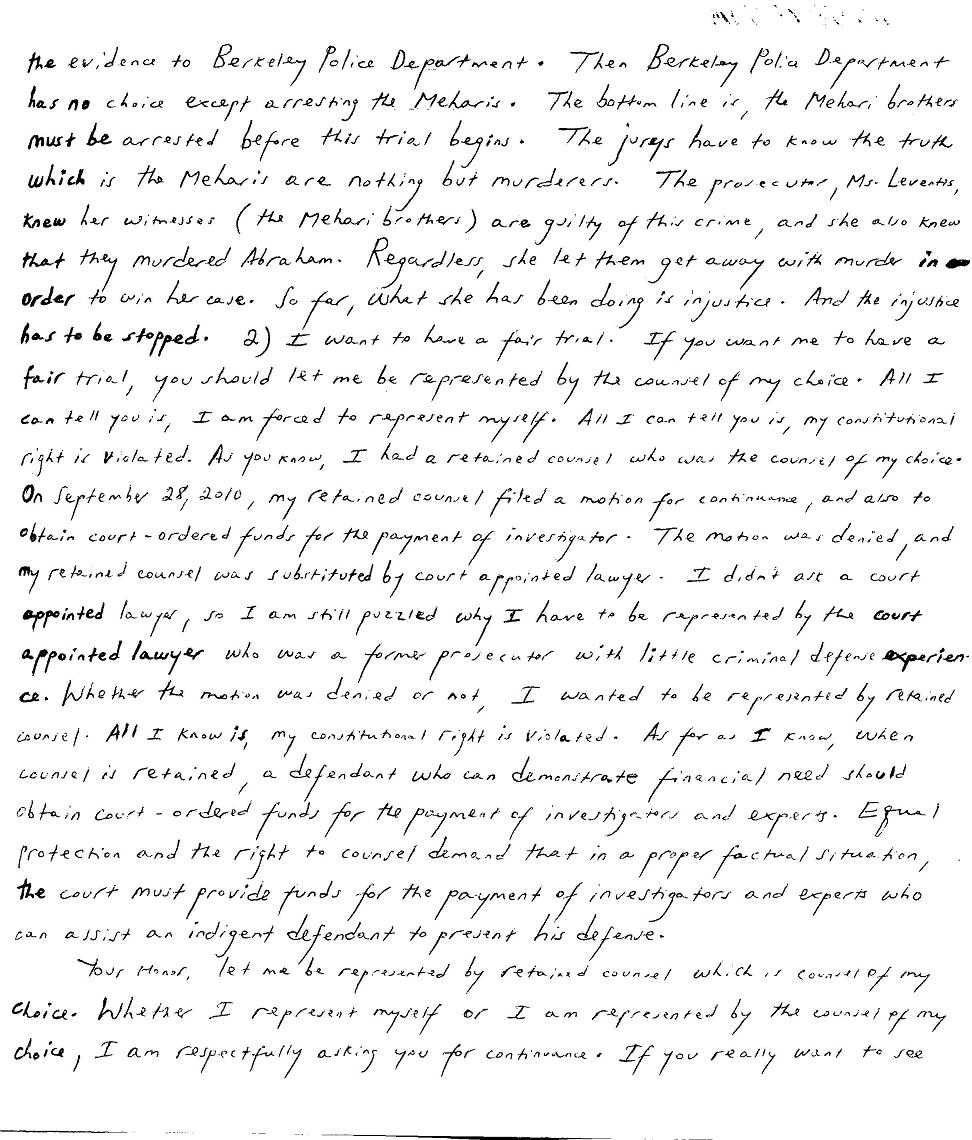 the evidence to Berkeley Police Department. Then Berkeley Police Department
has no choice except arresting the Meharis. The bottom line is, the Mehari brothers
must be arrested before this trial begins. The jureys have to know the truth
which is the Meharis are nothing but murderers. The prosecutor, Ms. Leventis,
knew her witnesses (the Mehari brothers) are guilty of this crime, and she also knew
that they murdered Abraham. Regardless, she let them get away with murder in
order to win her case. So far, what she has been doing is injustice. And the injustice
has to be stopped. 2) I want to have a fair trial. If you want me to have a
fair trial, you should let me be represented by the counsel of my choice. All I
can tell you is, I am forced to represent myself. All I can tell you is, my constitutional
right is violated. As you know, I had a retained counsel who was the counsel of my choice.
On September 28, 2010, my retained counsel filed a motion for continuance, and also to
obtain court-ordered funds for the payment of investigator. The motion was denied, and
my retained counsel was substituted by court appointed lawyer. I didn't ask a court
appointed lawyer, so I am still puzzled why I have to be represented by the court
appointed lawyer who was a former prosecutor with little criminal defense experien-
ce. Whether the motion was denied or not, I wanted to be represented by retained
counsel. All I know is, my constitutional right is violated. As far as I know, when
counsel is retained, a defendant who can demonstrate financial need should
obtain court-ordered funds for the payment of investigators and experts. Equal
protection and the right to counsel demand that in a proper factual situation,
the court must provide funds for the payment of investigators and experts who
can assist an indigent defendant to present his defense.
Your Honor, let me be represented by retained counsel which is counsel of my
choice. Whether I represent myself or I am represented by the counsel of my
choice, I am respectfully asking you for continuance. If you really want to see